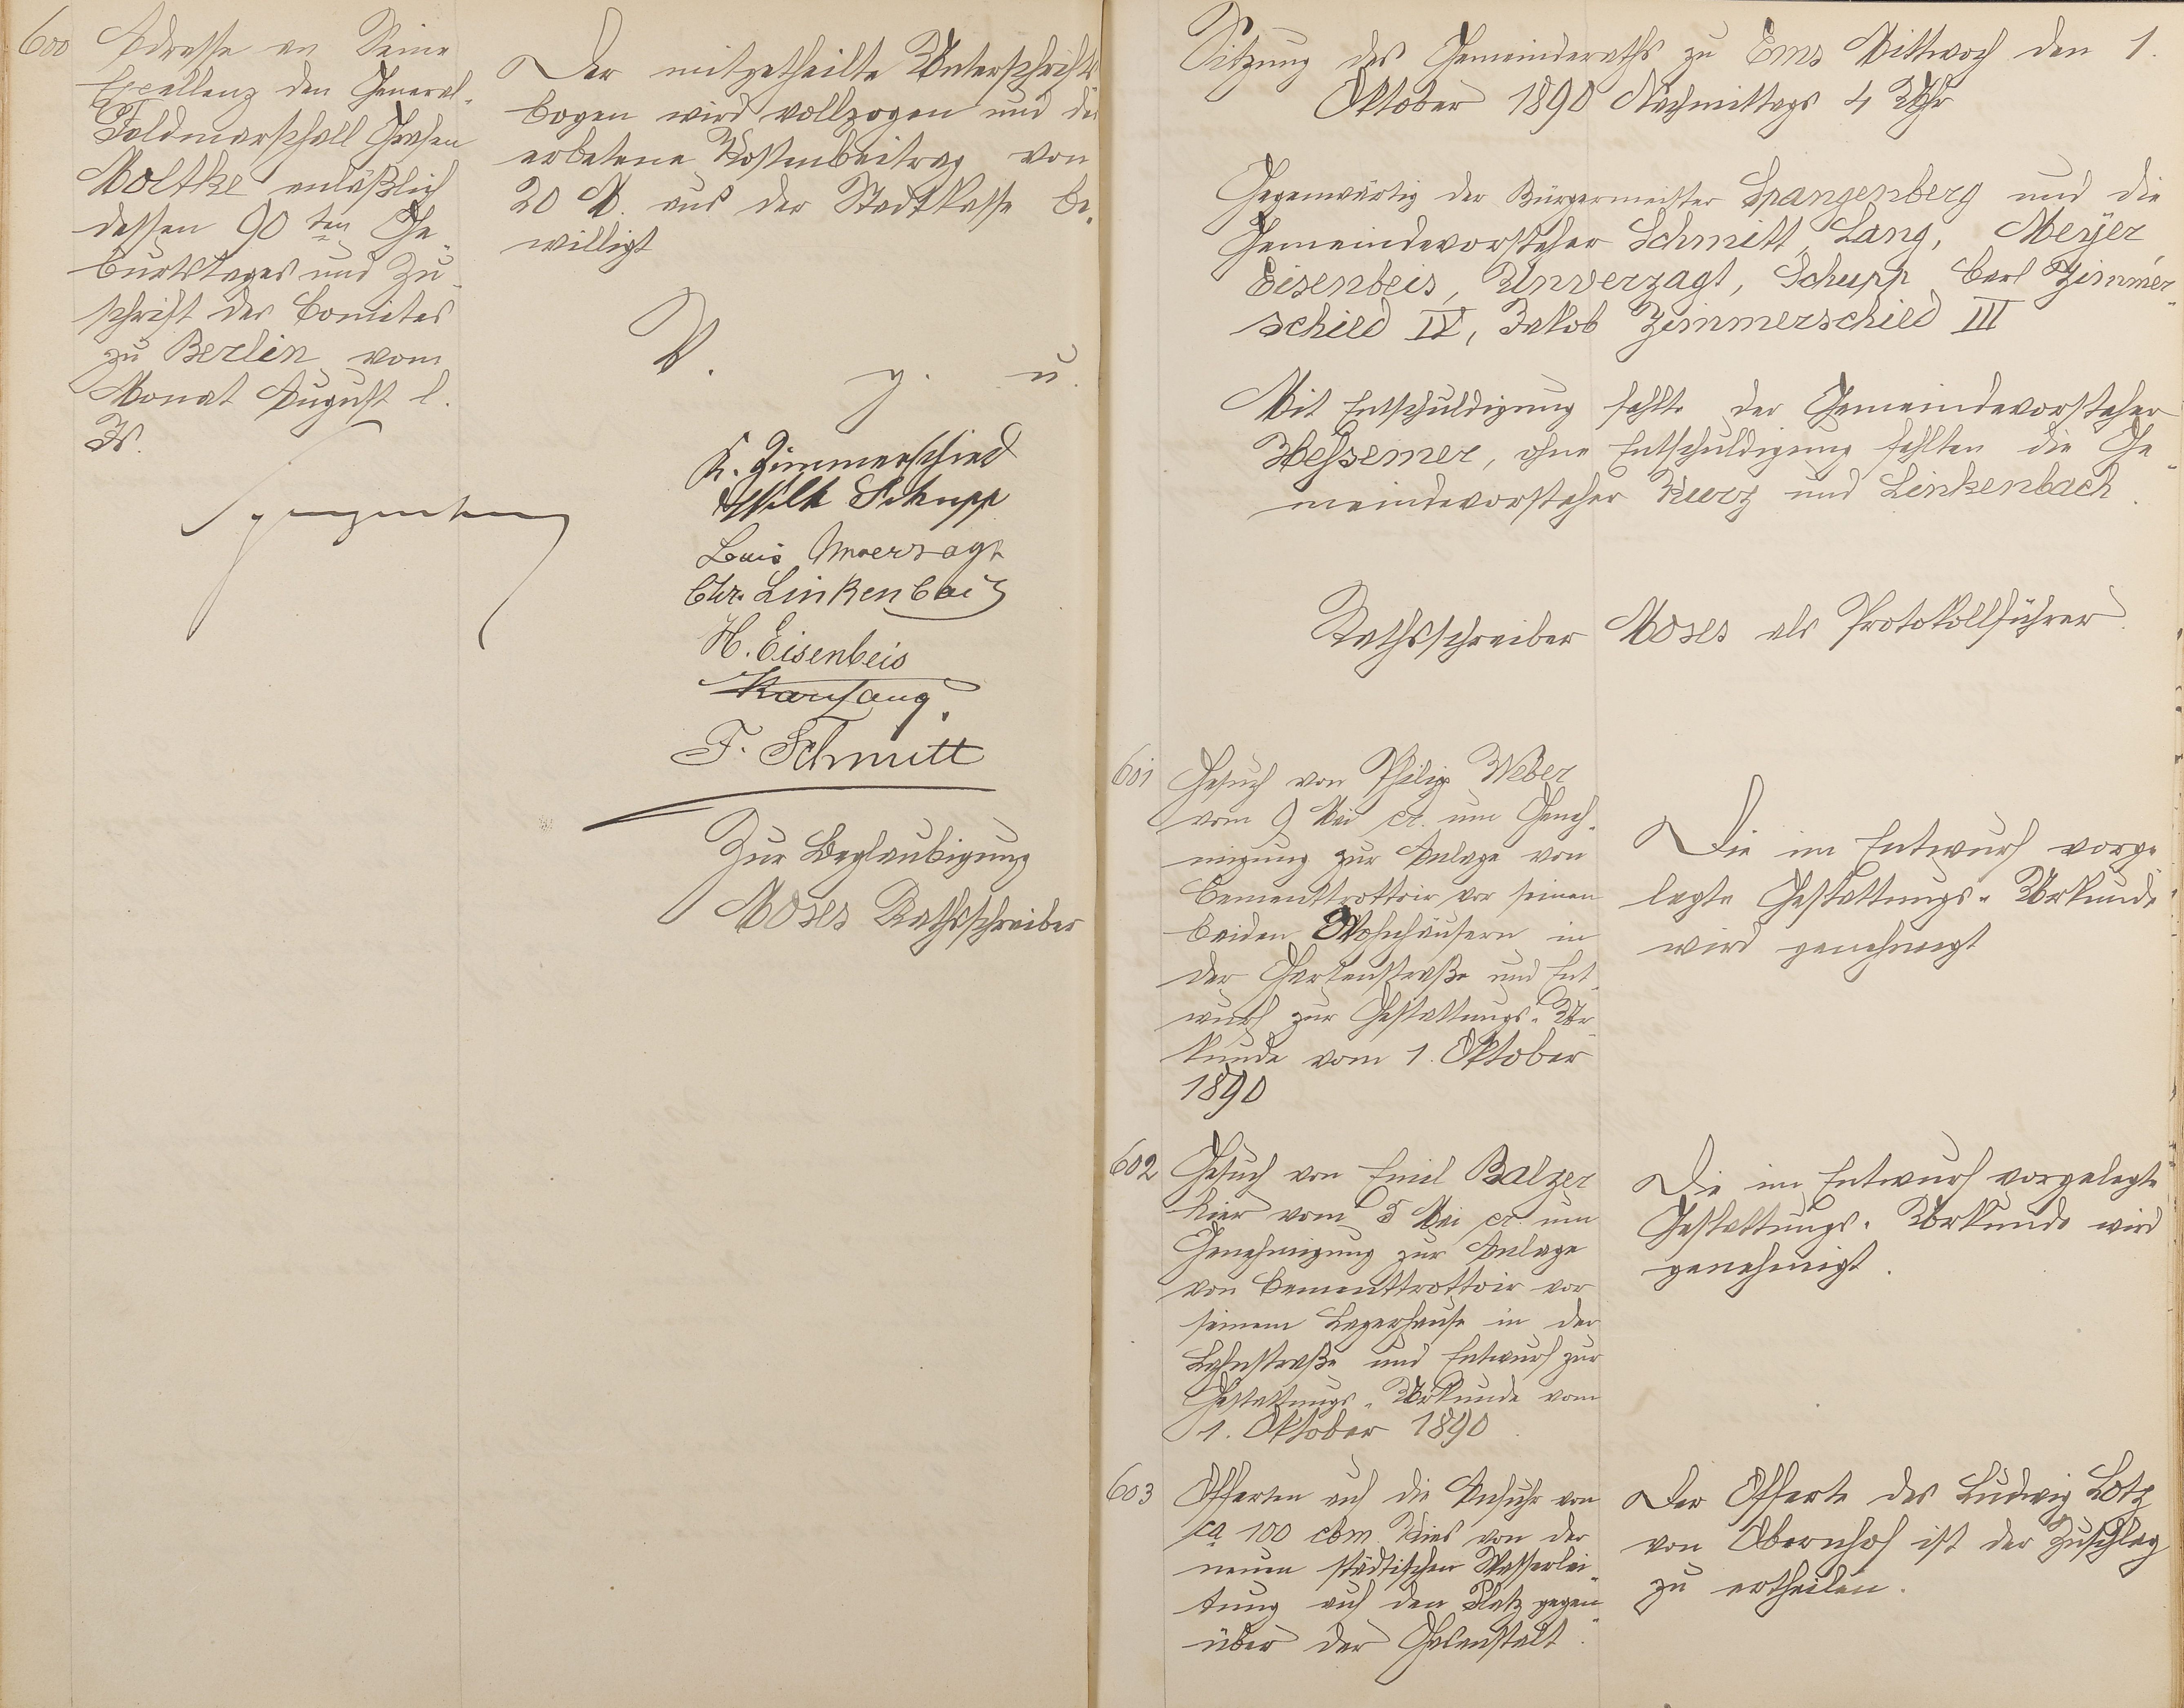 600
Adresse an Seine
Excellenz den General-
Feldmarschall Grafen
Moltke anläßlich
dessen 90 ten Ge-
burtstages und Zu-
schrift des Comites
zu Berlin vom
Monat August l.
Js.
Spangenberg
Der mitgetheilte Unterschrifts
bogen wird vollzogen und der
erbetene Kostenbeitrag von
20 M. aus der Stadtkasse be-
willigt
V. g. u.
K. Zimmerschied
Wilh Schupp
Louis Unverzagt
Chr. Linkenbach
H. Eisenbeis
F. Schmitt
Zur Beglaubigung
Moses Rathsschreiber
Sitzung des Gemeinderaths zu Ems Mittwoch den 1.
Oktober 1890 Nachmittags 4 Uhr
Gegenwärtig der Bürgermeister Spangenberg und die
Gemeindevorsteher Schmitt, Lang, Meyer
Eisenbeis, Unverzagt, Schupp Carl Zimmer-
schied IV, Jakob Zimmerschied III
Mit Entschuldigung fehlte der Gemeindevorsteher
Hessemer, ohne Entschuldigung fehlten die Ge-
meindevorsteher Kurz und Linkenbach.
Rathsschreiber Moses als Protokollführer.
601
Gesuch von Philip Weber
vom 9 Mai cr. um Geneh-
migung zur Anlage von
Cementtrottoir vor seinen
beiden Wohnhäusern in
der Gartenstraße und Ent-
wurf zur Gestattungs-Ur-
kunde vom 1. Oktober
1890
Die im Entwurf vorge
legte Gestattungs-Urkunde
wird genehmigt
602
Gesuch von Emil Balzer
hier vom 5 Mai cr. um
Genehmigung zur Anlage
von Cementtrottoir vor
seinem Lagerhause in der
Lahnstraße und Entwurf zur
Gestattungs-Urkunde vom
1. Oktober 1890.
Die im Entwurf vorgelegte
Gestattungs-Urkunde wird
genehmigt.
603
Offerten auf die Anfuhr von
ca 100 cbm Kies von der
neuen städtischen Wasserlei-
tung auf den Platz gegen-
über der Gasanstalt.
Der Offerte des Ludwig Lotz
von Obernhof ist der Zuschlag
zu ertheilen.